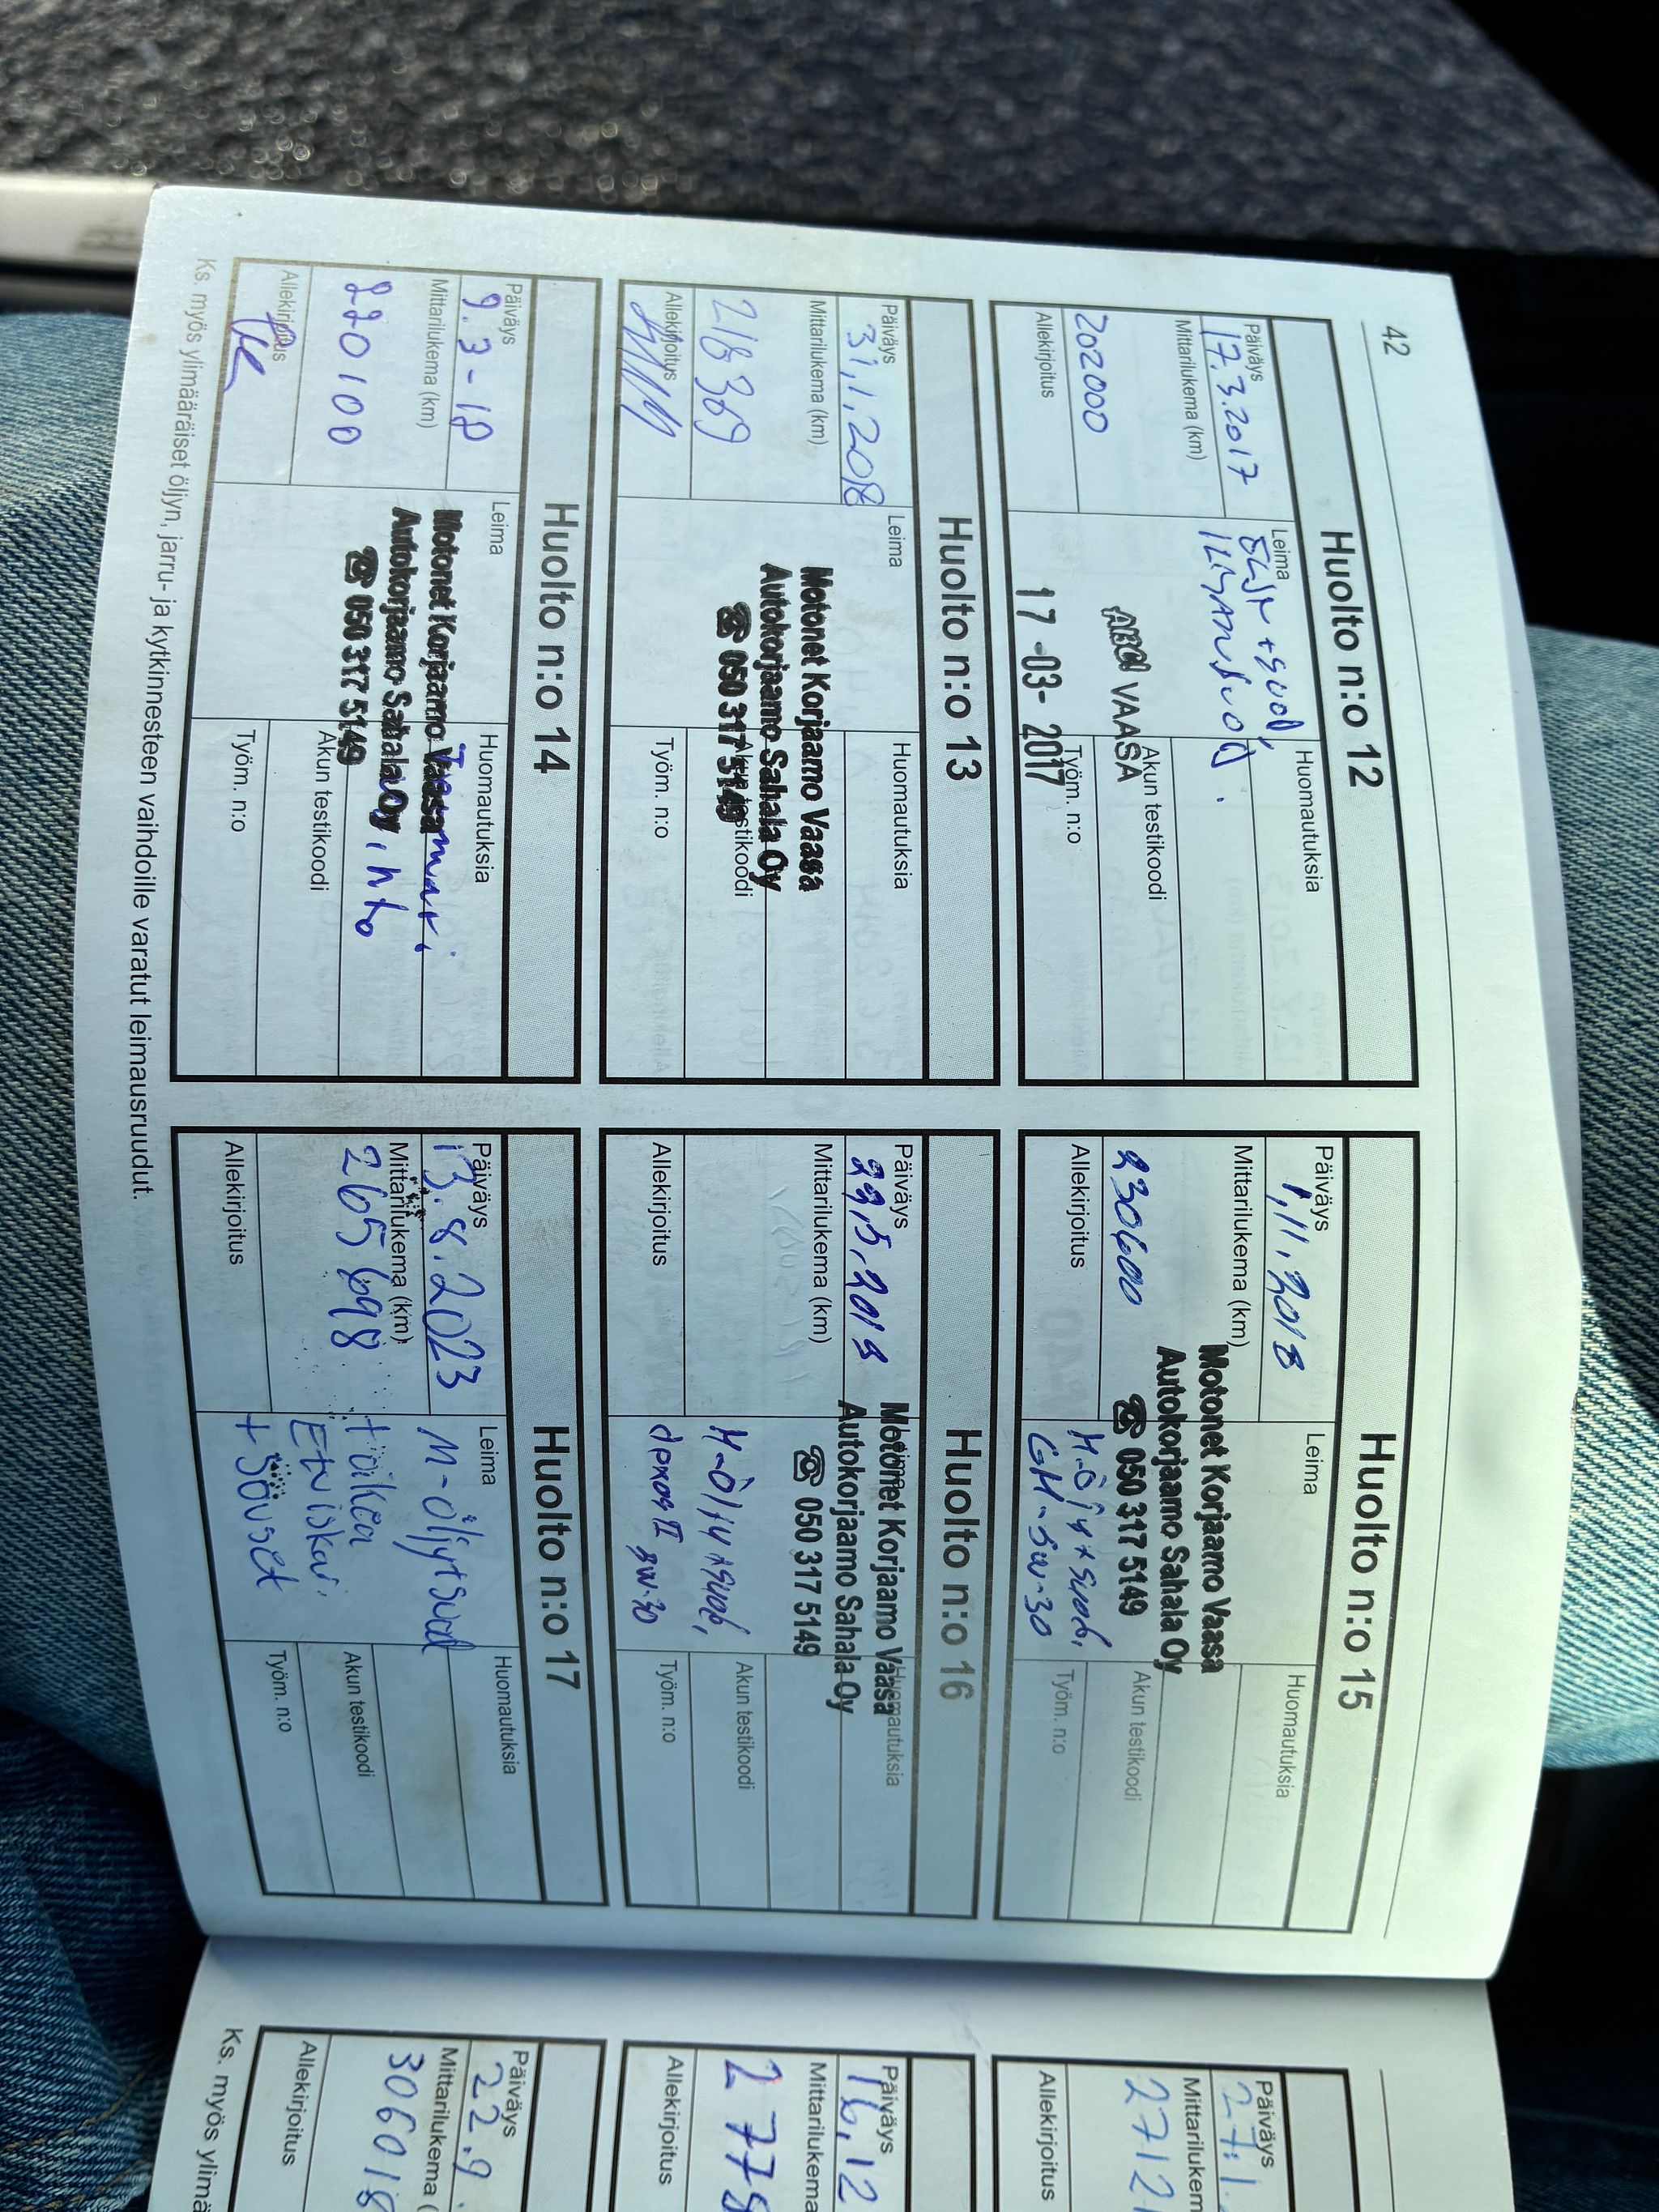 42
Huolto n:o 12
Päiväys
17.3.2017
Mittarilukema (km)
202000
Allekirjoitus
Leima
ABC VAASA
17 -03- 2017
Huomautuksia
Akun testikoodi
Työm. n:o
Huolto n:o 13
Päiväys
31.1.2018
Mittarilukema (km)
218369
Allekirjoitus
Leima
Motonet Korjaamo Vaasa
Autokorjaamo Sahala Oy
☎ 050 317 5149
Huomautuksia
Akun testikoodi
Työm. n:o
Huolto n:o 14
Päiväys
9.3-18
Mittarilukema (km)
220100
Allekirjoitus
Leima
Motonet Korjaamo Vaasa
Autokorjaamo Sahala Oy
☎ 050 317 5149
Huomautuksia
Akun testikoodi
Työm. n:o
Huolto n:o 15
Päiväys
1.11.2018
Mittarilukema (km)
230600
Allekirjoitus
Leima
Motonet Korjaamo Vaasa
Autokorjaamo Sahala Oy
☎ 050 317 5149
5w-30
Huomautuksia
Akun testikoodi
Työm. n:o
Huolto n:o 16
Päiväys
Mittarilukema (km)
Allekirjoitus
Leima
Motonet Korjaamo Vaasa
Autokorjaamo Sahala Oy
☎ 050 317 5149
M-öljy + suod.
dexos II 5W-30
Huomautuksia
Akun testikoodi
Työm. n:o
Huolto n:o 17
Päiväys
13.8.2023
Mittarilukema (km)
265698
Allekirjoitus
Leima
M-öljyt+suod
+ oikea
Etuiskari
Huomautuksia
Akun testikoodi
Työm. n:o
Ks. myös ylimääräiset öljyn, jarru- ja kytkinnesteen vaihdoille varatut leimausruudut.
Päiväys
27.1.
Mittarilukem
2712
Allekirjoitus
Päiväys
16.12
Mittarilukema
2778
Allekirjoitus
Päiväys
22.9.
Mittarilukema (
306018
Allekirjoitus
Ks. myös ylimä